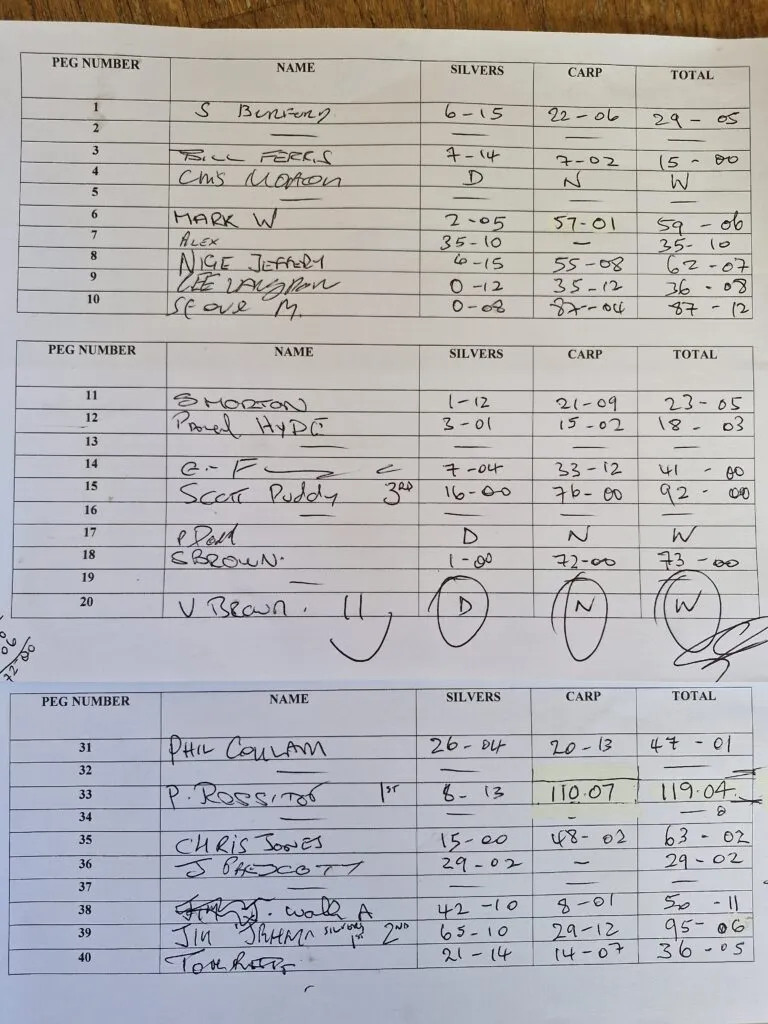 PEG NUMBER NAME SILVERS CARP TOTAL
1 S Burford 6-15 22-06 29-05
2 — — — —
3 BILL FERRIS 7-14 7-02 15-00
4 Chris Morton D N W
5 — — — —
6 MARK W 2-05 57-01 59-06
7 ALEX 35-10 — 35-10
8 NIGE JEFFERY 6-15 55-08 62-07
9 LEE 0-12 35-12 36-08
10 M. 0-08 87-04 87-12
PEG NUMBER NAME SILVERS CARP TOTAL
11 S MORTON 1-12 21-09 23-05
12 HYDE 3-01 15-02 18-03
13 — — — —
14 7-04 33-12 41-00
15 Scott Puddy 3RD 16-00 76-00 92-00
16 — — — —
17 D N W
18 S BROWN. 1-00 72-00 73-00
19 — — — —
20 V Brown. 11 D N W
06
72-00
PEG NUMBER NAME SILVERS CARP TOTAL
31 PHIL COULAM 26-04 20-13 47-01
32 — — — —
33 P. 1ST 8-13 110.07 119.04
34 — — — —
35 CHRIS JONES 15-00 48-02 63-02
36 J 29-02 — 29-02
37 — — — —
38 A 42-10 8-01 50-11
39 JIM SILVERS 1st 2ND 65-10 29-12 95-06
40 Tom 21-14 14-07 36-05